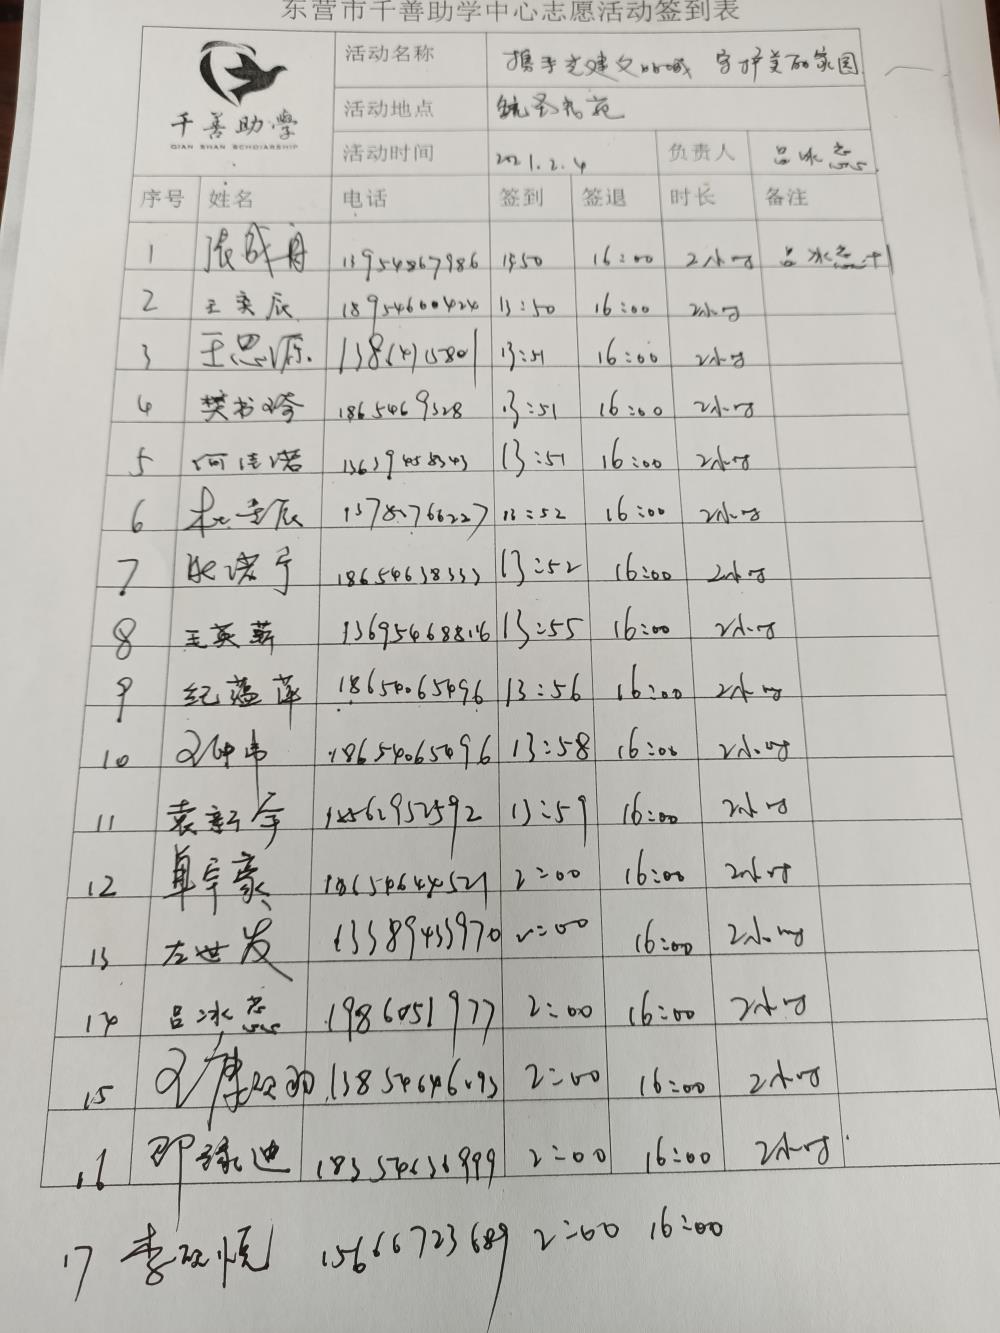 东营市千善助学中心志愿活动签到表
千善助学
QIAN SHAN SCHOLARSHIP
活动名称 携手共建文明城 守护美丽家园
活动地点
活动时间 2021.2.4 负责人 吕冰
序号 姓名 电话 签到 签退 时长 备注
1 张成舟 13954867986 13:50 16:00 2小时 吕冰
2 王奕辰 18954600424 13:50 16:00 2小时
3 王思源 13:51 16:00 2小时
4 樊书 1865469328 13:51 16:00 2小时
5 何佳诺 13639458343 13:51 16:00 2小时
6 13:52 16:00 2小时
7 18654638333 13:52 16:00 2小时
8 王英薪 13695468816 13:55 16:00 2小时
9 纪蕴萍 18654065496 13:56 16:00 2小时
10 18654065496 13:58 16:00 2小时
11 袁新宇 13:59 16:00 2小时
12 单宇豪 18654644521 2:00 16:00 2小时
13 左世友 13389433970 2:00 16:00 2小时
14 吕冰 2:00 16:00 2小时
15 2:00 16:00 2小时
16 2:00 16:00 2小时
17 李 15666723689 2:00 16:00